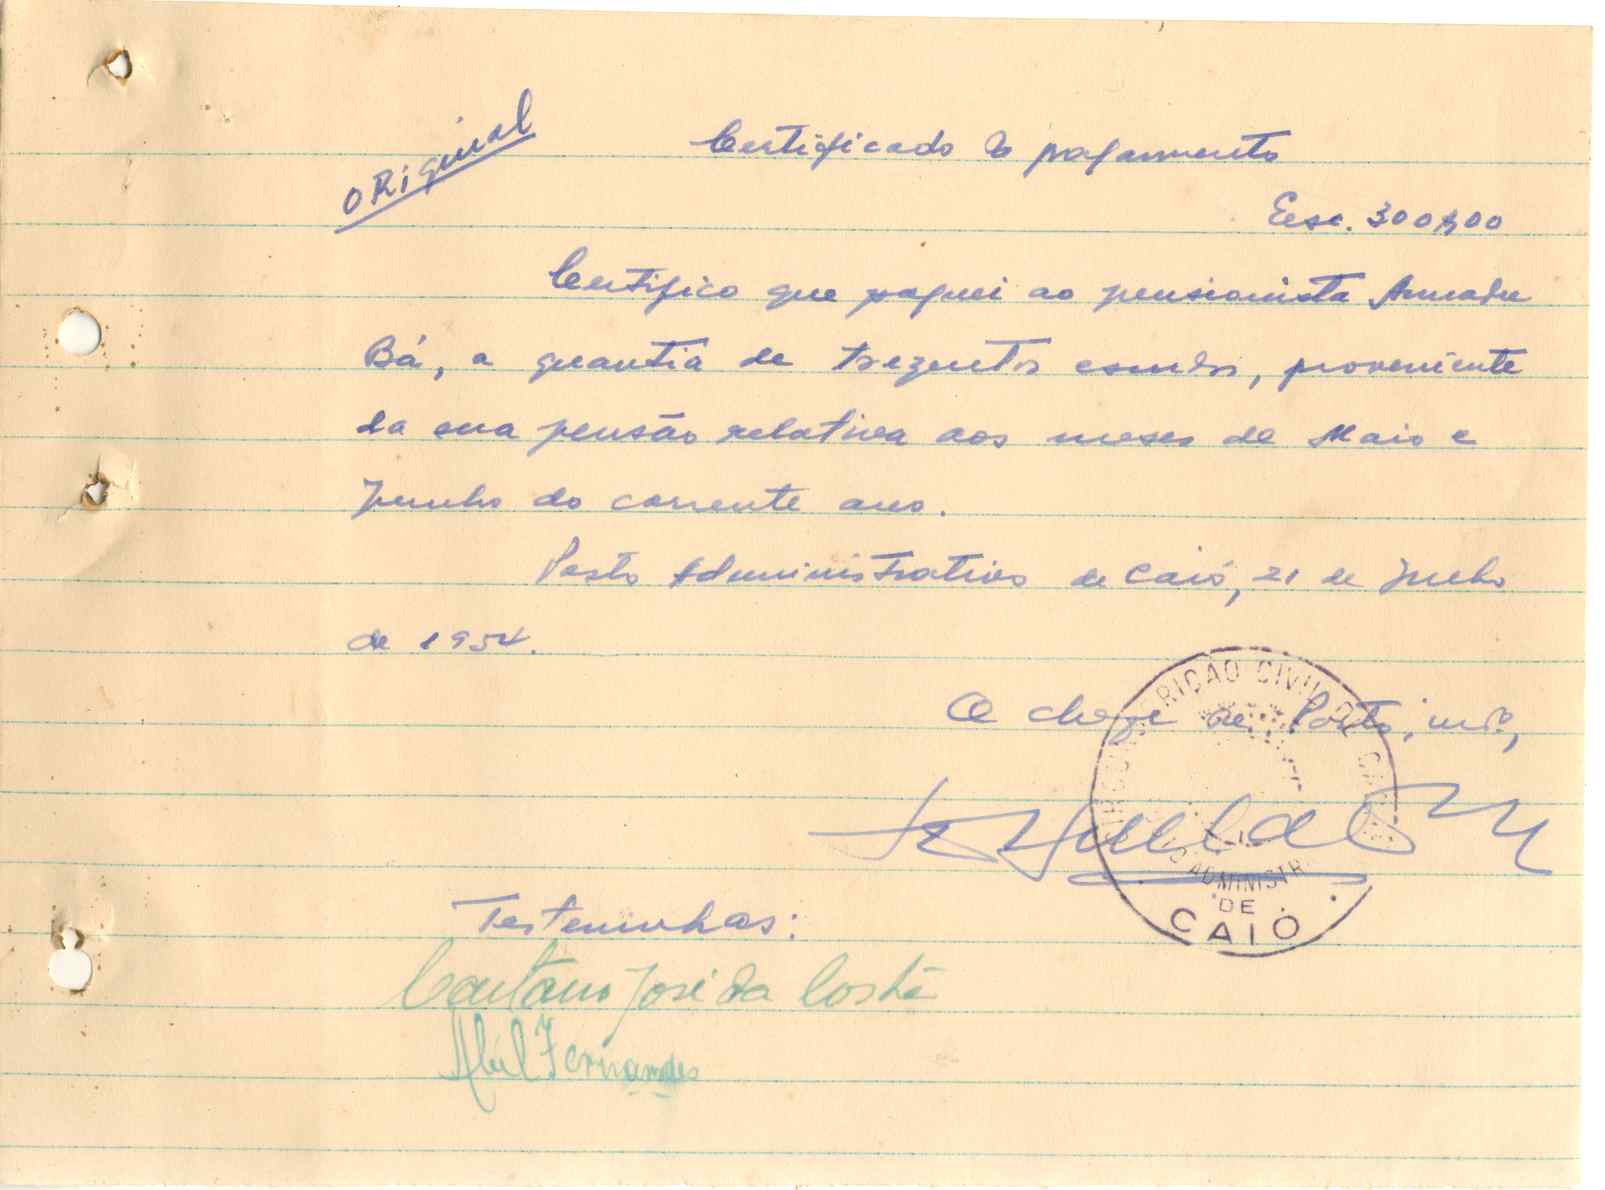 ORiginal
Certificado de pagamento
Esc. 300$00
Certifico que paguei ao pensionista Amadu
Bá, a quantia de trezentos escudos, proveniente
da sua pensão relativa aos meses de Maio e
Junho do corrente ano.
Posto Administrativo de Caió, 21 de Julho
de 1954.
O chefe de Posto, intº,
RIÇÃO CIVIL
ADMINISTR
DE
CAIÓ
Testeminhas:
Caetano José da Costa
Abil Fernandes